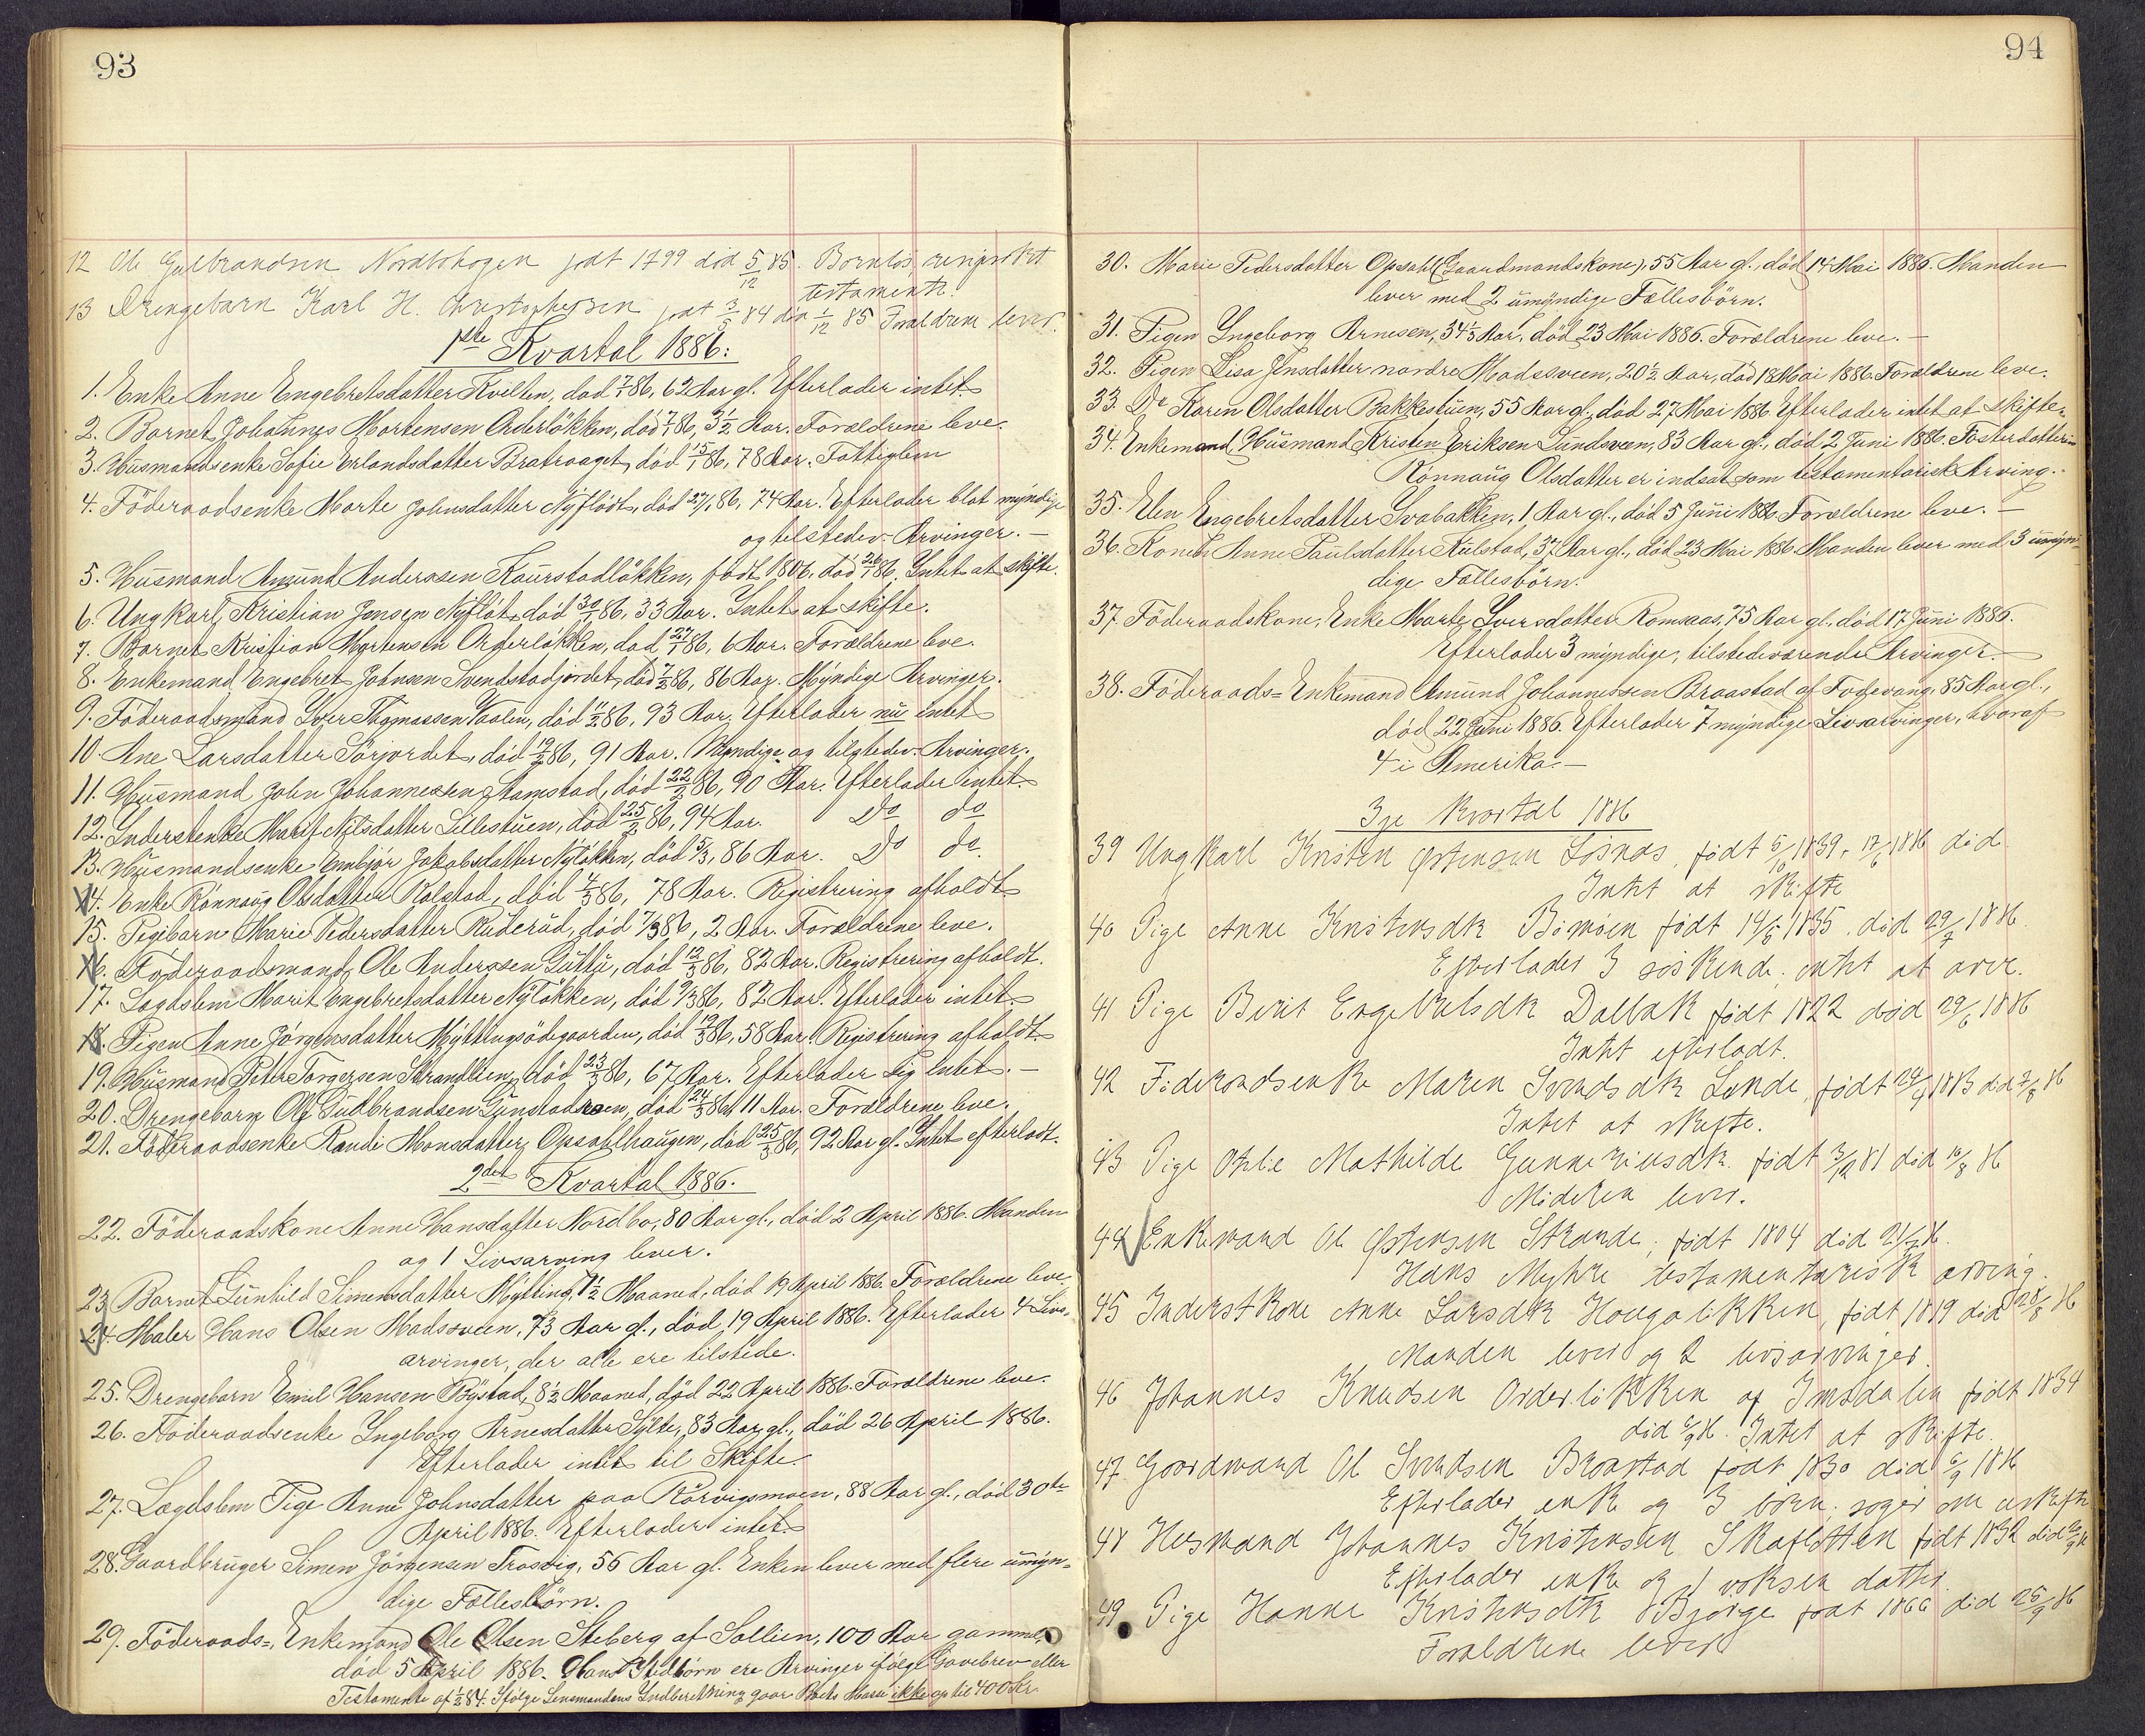 93
12 Ole Gulbrandsen Nordbohagen født 1799 død 5/12 85. Barnløs,
testamente.
13 Drengebarn Karl H. Christophersen født 3/5 84 død 1/12 85 Forældrene lever.
1ste Kvartal 1886:
1. Enke Anne Engebretsdatter Kvilten, död 7/1 86, 62 Aar gl. Efterlader intet.
2. Barnet Johannes Mortensen Orderlökken, död 7/1 86, 3 1/2 Aar. Forældrene leve.
3. Husmandsenke Sofie Erlandsdatter Bratvaaget, död 15/1 86, 78 Aar. Fattiglem
4. Föderaadsenke Marte Johnsdatter Nyflödt, död 27/1 86, 74 Aar. Efterlader blot myndige
og tilstedev. Arvinger. —
5. Husmand Amund Anderssen Kaurstadlökken, født 1806, död 26/1 86. Intet at skifte.
6. Ungkarl Kristian Jensen Nyflöt, död 30/1 86, 33 Aar. Intet at skifte.
7. Barnet Kristian Mortensen Orderlökken, död 27/1 86, 6 Aar. Forældrene leve.
8. Enkemand Engebret Johnsen Svendstadjordet, död 7/2 86, 86 Aar. Myndige Arvinger.
9. Föderaadsmand Iver Thomassen Vaalen, död 11/2 86, 93 Aar. Efterlader nu intet
10. Ane Larsdatter Sörjordet, död 19/2 86, 91 Aar. Myndige og tilstedev. Arvinger.
11. Husmand John Johannessen Stamstad, död 22/2 86, 90 Aar. Efterlader intet.
12. Inderstenke Marit Nilsdatter Lillestuen, död 25/2 86, 94 Aar. Do do
13. Husmandsenke Embjör Jakobsdatter Nylökken, död 5/3, 86 Aar. Do do.
14. Enke Rönnaug Olsdatter Kolstad, död 4/3 86, 78 Aar. Registrering afholdt.
15. Pigebarn Marie Pedersdatter Ruderud, död 7/3 86, 2 Aar. Forældrene leve.
16. Föderaadsmand Ole Anderssen Guttu, död 12/3 86, 82 Aar. Registrering afholdt.
17. Lægdslem Marit Engebretsdatter Nylökken, död 9/3 86, 82 Aar. Efterlader intet.
18. Pigen Anne Jörgensdatter Myttingsödegaarden, död 19/3 86, 58 Aar. Registrering afholdt
19. Husmand Peter Torgersen Strandlien, död 23/3 86, 67 Aar. Efterlader sig intet. —
20. Drengebarn Ole Gudbrandsen Gunstadmoen, död 24/3 86, 11 Aar. Forældrene leve.
21. Föderaadsenke Randi Monsdatter Opsahlhaugen, död 25/3 86, 92 Aar gl. Intet efterladt.
2det Kvartal 1886.
22. Föderaadskone Anne Hansdatter Nordbo, 80 Aar gl., död 2 April 1886. Manden
og 1 Livsarving lever.
23 Barnet Gunhild Simensdatter Mytting, 1 1/2 Maaned, död 19 April 1886. Forældrene leve.
24. Maler Hans Olsen Madssveen, 73 Aar gl., död 19 April 1886. Efterlader 4 Livs-
arvinger, der alle ere tilstede.
25. Drengebarn Emil Hansen Böystad, 8 1/2 Maaned, död 22 April 1886. Forældrene leve.
26. Föderaadsenke Ingeborg Arnesdatter Sylte, 83 Aar gl., död 26 April 1886.
Efterlader intet til Skifte.
27. Lægdslem Pige Anne Johnsdatter paa Rörvigsmoen, 88 Aar gl., död 30te
April 1886. Efterlader intet.
28. Gaardbruger Simen Jörgensen Trosvig, 55 Aar gl. Enken lever med flere umyn-
dige Fællesbörn.
29. Föderaads-Enkemand Ole Olsen Steberg af Sollien, 100 Aar gammel,
död 5 April 1886. Hans Stedbörn ere Arvinger ifölge Gavebrev eller
Testamente af 1/2 84. Ifölge Lensmandens Indberetning gaar Boets Masse ikke op til 400 Kr.
94
30. Marie Pedersdatter Opsahl (Gaardmandskone), 55 Aar gl., död 14 Mai 1886. Manden
lever med 2 umyndige Fællesbörn.
31. Pigen Ingeborg Arnesen, 34 1/3 Aar, död 23 Mai 1886. Forældrene leve. —
32. Pigen Lisa Jensdatter nordre Madssveen, 20 1/2 Aar, död 18 Mai 1886. Forældrene leve.
33. Do Karen Olsdatter Bakkestuen, 55 Aar gl., död 27 Mai 1886. Efterlader intet at skifte.
34. Enkemand Husmand Kristen Eriksen Sundsveen, 83 Aar gl., död 2 Juni 1886. Fosterdatteren
Rönnaug Olsdatter er indsat som testamentarisk Arving.
35. Elen Engebretsdatter Svabakken, 1 Aar gl., död 5 Juni 1886. Forældrene leve. —
36. Konen Anne Paulsdatter Kulstad, 37 Aar gl., död 23 Mai 1886. Manden lever med 3 umyn-
dige Fællesbörn.
37. Föderaadskone, Enke Marte Iversdatter Romsaas, 75 Aar gl. död 17 Juni 1886.
Efterlader 3 myndige, tilstedeværende Arvinger. —
38. Föderaads-Enkemand Amund Johannessen Braastad af Fodvang, 85 Aar gl.,
död 22 Juni 1886. Efterlader 7 myndige Livsarvinger, hvoraf
4 i Amerika. —
3je Kvartal 1886
39 Ungkarl Kristen Østensen Losnas, født 5/10 1839, 17/6 1886 død
Intet at skifte
40 Pige Anne Kristensdtr Bimoen født 14/5 1835. død 29/7 1886
Efterlader 3 søskende; intet at arve.
41 Pige Berit Engebretsdtr Dalbak født 1822 død 29/6 1886
Intet efterladt.
42 Føderaadsenke Maren Svendsdtr Lunde, født 24/9 1813 død 2/8 86
Intet at skifte.
43 Pige Othilie Mathilde Gunneriusdtr. født 3/12 81 død 10/8 86
Moderen lever.
44 Enkemand Ole Østensen Strande, født 1804 død 21/7 86.
Hans Myhre testamentarisk arving.
45 Inderstkone Anne Larsdtr Hougaløkken, født 1819 død 28/8 86
Manden lever og 2 livsarvinger.
46 Johannes Knudsen Orderløkken af Imsdalen født 1834
død 6/9 86. Intet at skifte.
47 Gaardmand Ole Svendsen Braastad født 1830 død 6/9 1886
Efterlader enke og 3 børn; søger om uskifte
48 Husmand Johannes Kristensen Skafløtten født 1832 død
Efterlader enke og 1 voksen datter.
49 Pige Hanne Kristensdtr Bjørge født 1866 død 25/9 86
Forældrene lever